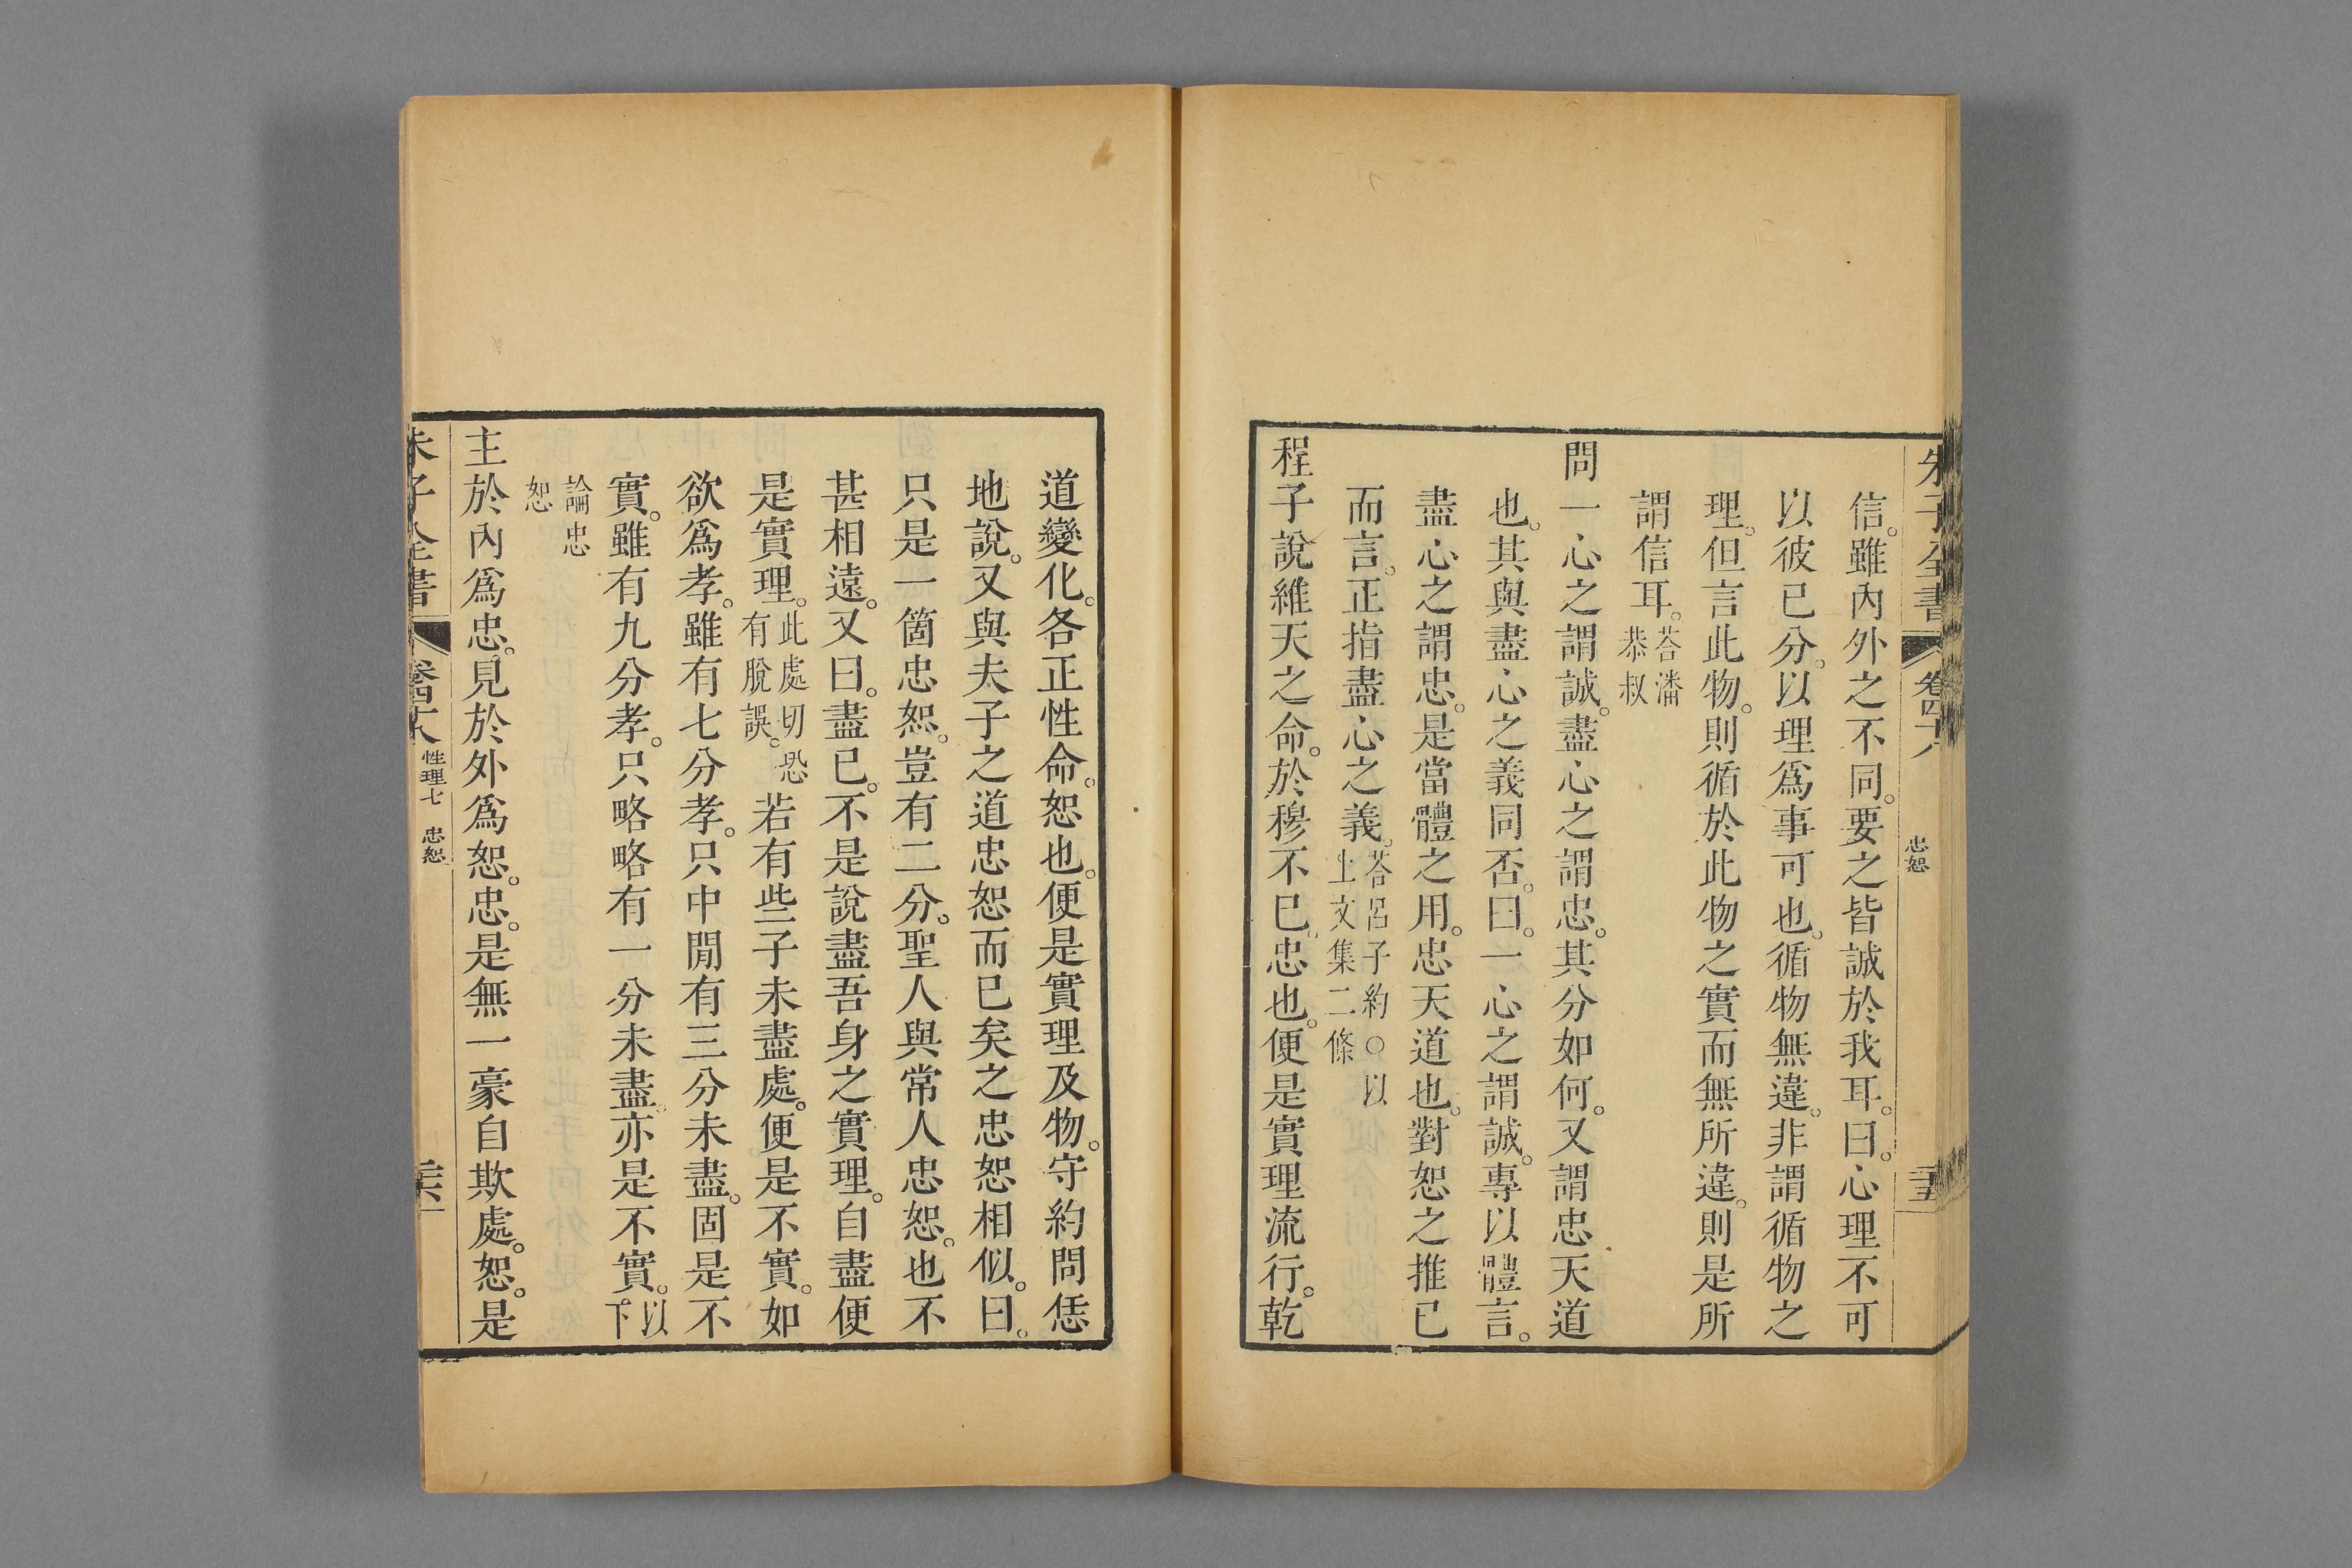 朱子全書 卷四十八 忠恕 三十五
信。雖內外之不同。要之皆誠於我耳。曰。心理不可
以彼已分。以理爲事可也。循物無違。非謂循物之
理。但言此物。則循於此物之實而無所違。則是所
謂信耳。荅潘恭叔
問一心之謂誠。盡心之謂忠。其分如何。又謂忠天道
也。其與盡心之義同否。曰。一心之謂誠。專以體言。
盡心之謂忠。是當體之用。忠天道也。對恕之推已
而言。正指盡心之義。荅呂子約○以上文集二條
程子說維天之命。於穆不已。忠也。便是實理流行。乾
道變化。各正性命。恕也。便是實理及物。守約問恁
地說。又與夫子之道忠恕而已矣之忠恕相似。曰。
只是一箇忠恕。豈有二分。聖人與常人忠恕。也不
甚相遠。又曰。盡已。不是說盡吾身之實理。自盡便
是實理。此處切恐有脫誤。若有些子未盡處。便是不實。如
欲爲孝。雖有七分孝。只中閒有三分未盡。固是不
實。雖有九分孝。只略略有一分未盡。亦是不實。以下
論忠恕
主於內爲忠。見於外爲恕。忠。是無一豪自欺處。恕。是
朱子全書 卷四十八 性理七 忠恕 三十六